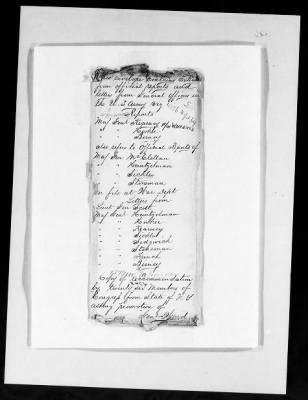 This envelope contains extracts
from official reports and
letters from General officers in
the U. S. Army viz
Reports
Maj Genl Kearney of
" " Hooker
" " Birney
also refers to Official Reports of
Maj Gen McClellan
" " Heintzelman
" " Sickles
" " Stoneman
on file at War Dept
Letters from
Lieut Gen Scott
Maj Genl Heintzelman
" " Hooker
" " Kearney
" " Sickles
" " Sedgwick
" " Stoneman
" " French
" " Birney
Copy of Recommendation
by Twenty six Members of
Congress from State of N. Y
asking promotion of
Genl Ward